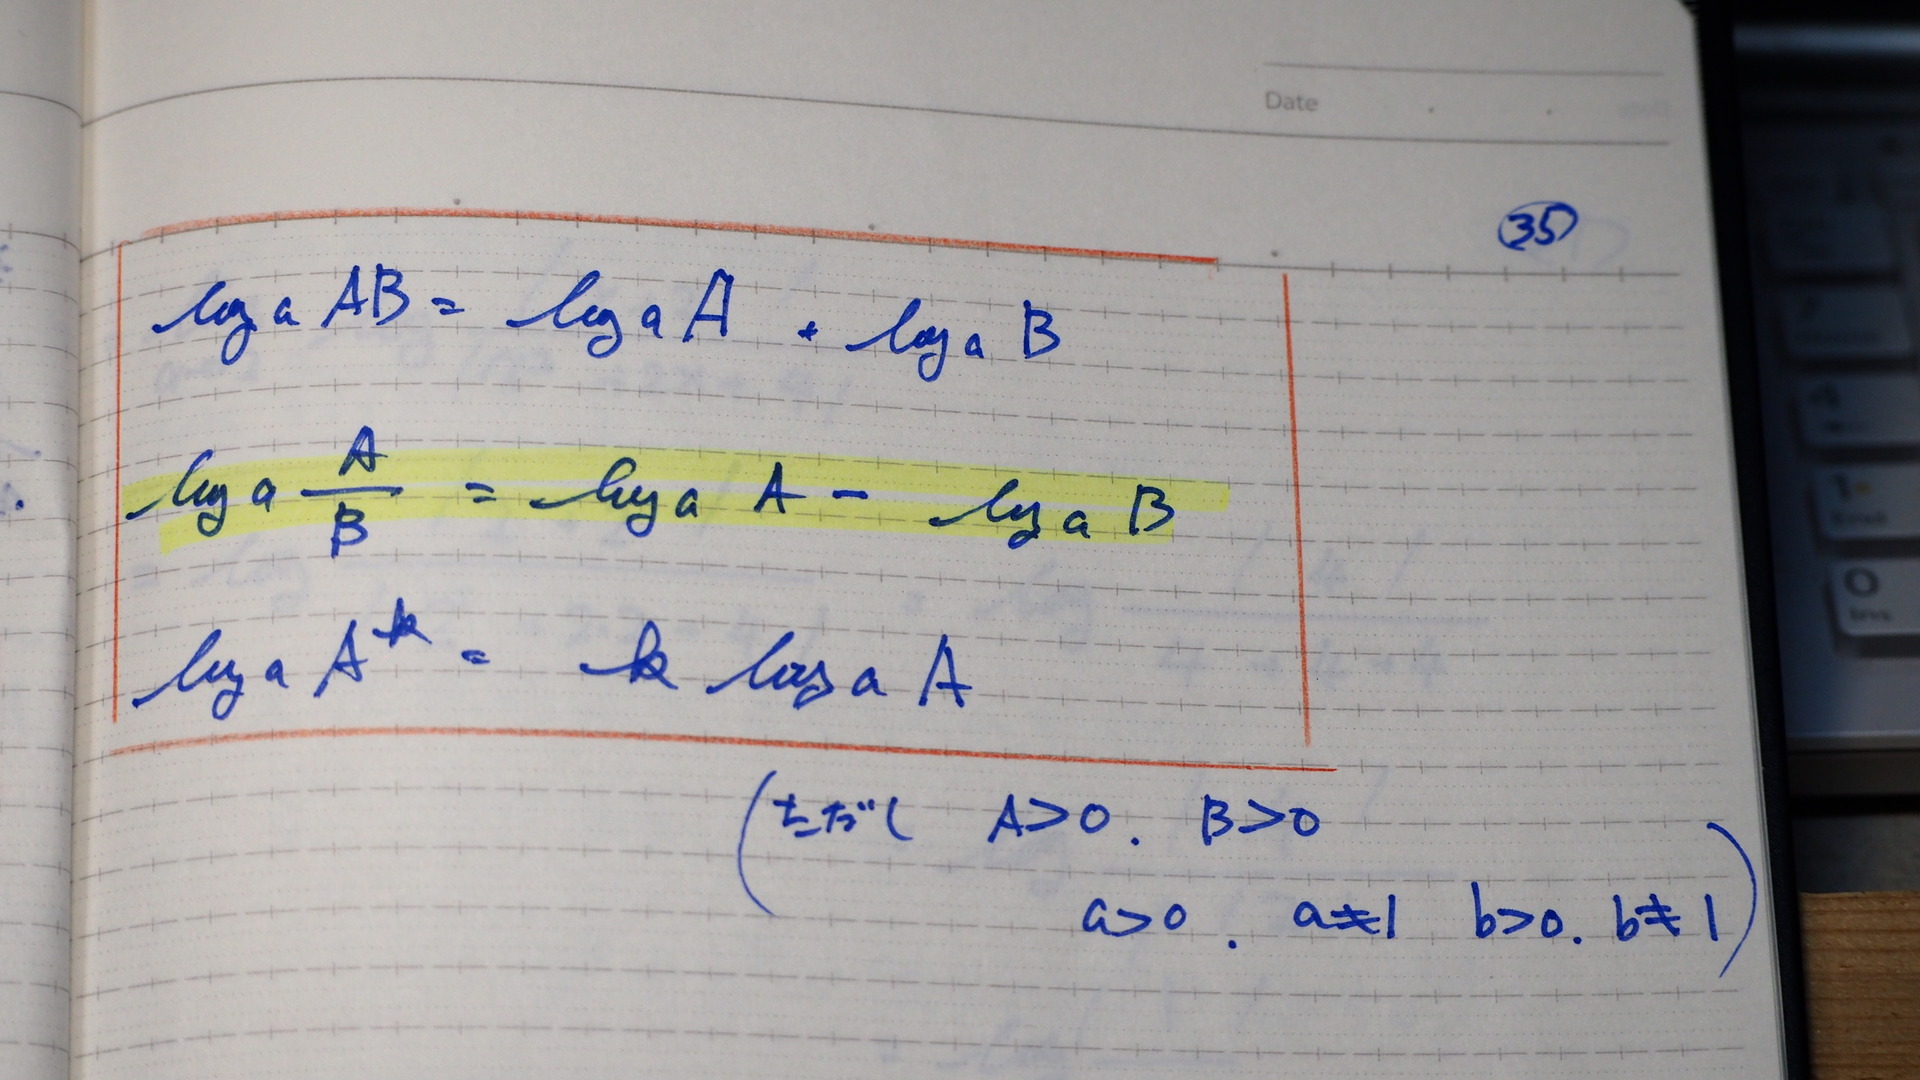 Date
35
log a AB = log a A + log a B
log a A/B = log a A - log a B
log a A^k = k log a A
(ただし A>0. B>0
a>0. a≠1 b>0. b≠1)